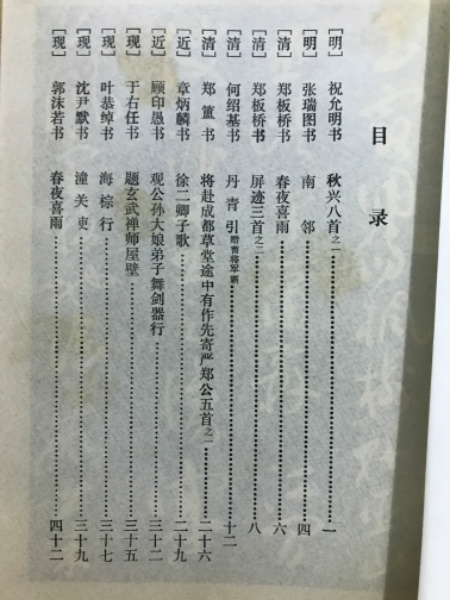 目录
[明] 祝允明书 秋兴八首之一……一
[明] 张瑞图书 南邻……四
[清] 郑板桥书 春夜喜雨……六
[清] 郑板桥书 屏迹三首之二……八
[清] 何绍基书 丹青引赠曹将军霸……十二
[清] 郑簠书 将赴成都草堂途中有作先寄严郑公五首之二……二十六
[近] 章炳麟书 徐二卿子歌……二十九
[近] 顾印愚书 观公孙大娘弟子舞剑器行……三十二
[现] 于右任书 题玄武禅师屋壁……三十五
[现] 叶恭绰书 海棕行……三十七
[现] 沈尹默书 潼关吏……三十九
[现] 郭沫若书 春夜喜雨……四十二